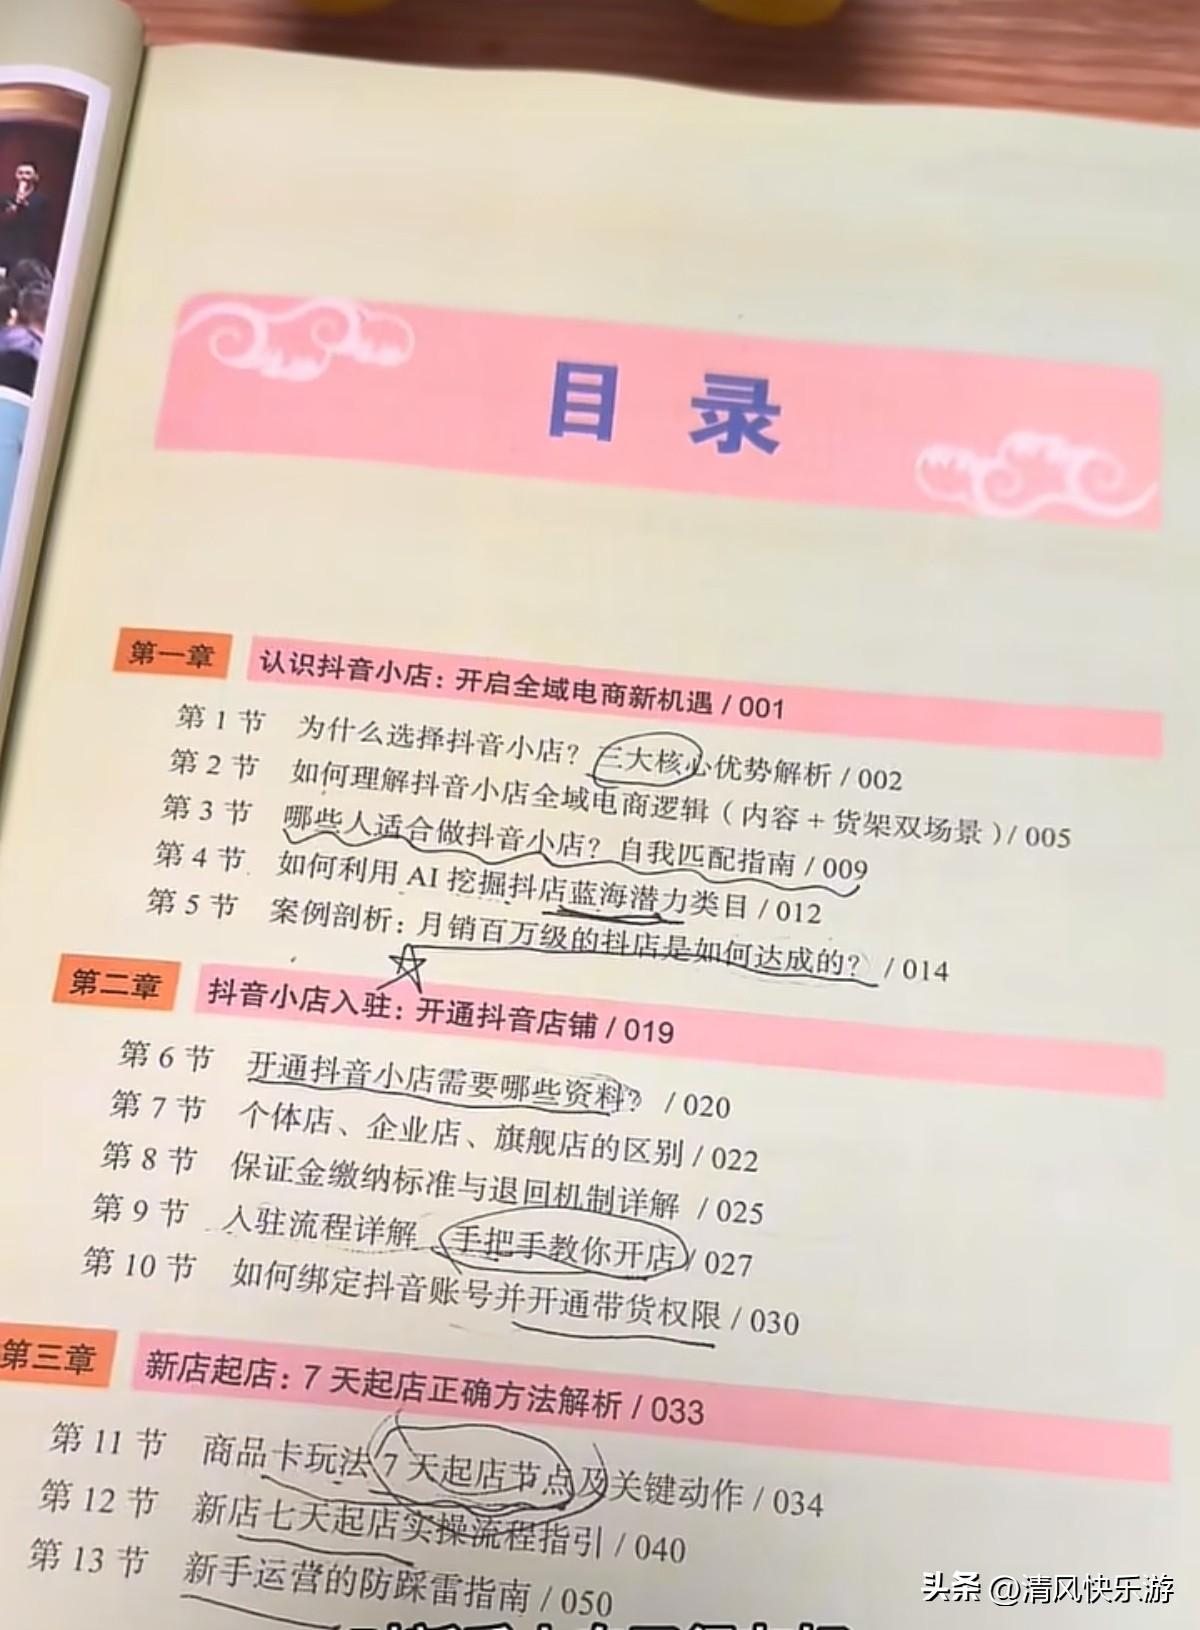 目录
第一章 认识抖音小店：开启全域电商新机遇 / 001
第 1 节 为什么选择抖音小店？三大核心优势解析 / 002
第 2 节 如何理解抖音小店全域电商逻辑（内容 + 货架双场景）/ 005
第 3 节 哪些人适合做抖音小店？自我匹配指南 / 009
第 4 节 如何利用 AI 挖掘抖店蓝海潜力类目 / 012
第 5 节 案例剖析：月销百万级的抖店是如何达成的？ / 014
第二章 抖音小店入驻：开通抖音店铺 / 019
第 6 节 开通抖音小店需要哪些资料？ / 020
第 7 节 个体店、企业店、旗舰店的区别 / 022
第 8 节 保证金缴纳标准与退回机制详解 / 025
第 9 节 入驻流程详解 手把手教你开店 / 027
第 10 节 如何绑定抖音账号并开通带货权限 / 030
第三章 新店起店：7 天起店正确方法解析 / 033
第 11 节 商品卡玩法 7 天起店节点及关键动作 / 034
第 12 节 新店七天起店实操流程指引 / 040
第 13 节 新手运营的防踩雷指南 / 050
头条 @清风快乐游